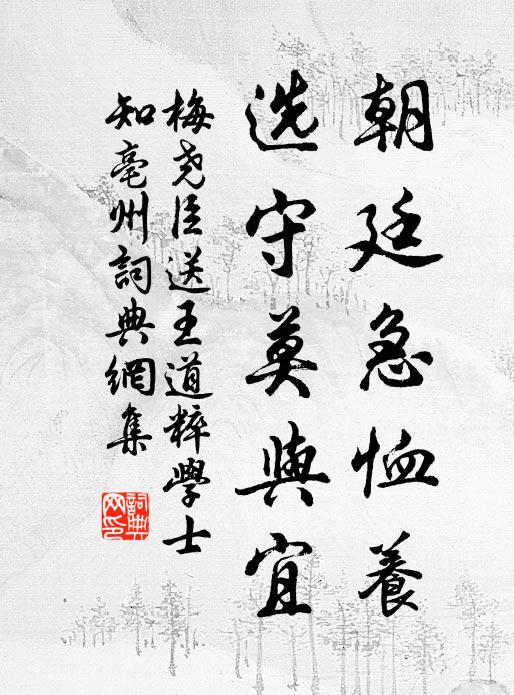 朝廷急恤養
选守莫與宜
梅尧臣送王道粹學士
知亳州詞典網集
詞典网印